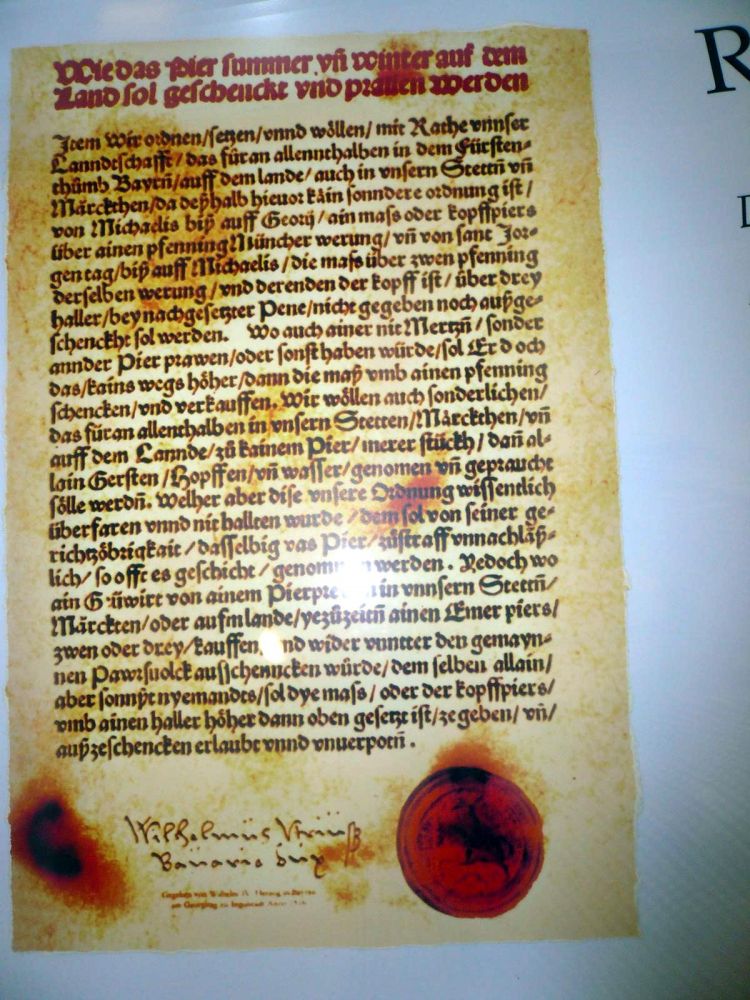 Wie das Pier summer vñ winter auf dem
Land sol geschenckt vnd prauen werden
Item Wir ordnen/setzen/vnnd wöllen/mit Rathe vnnser
Lanndtschafft/das füran allennthalben in dem Fürsten-
thůmb Bayrñ/auff dem lande/auch in vnsern Stettñ vñ
Märckthen/da deßhalb hieuor kain sonndere ordnung ist/
von Michaelis biß auff Georij/ain mass oder kopffpiers
über ainen pfenning Müncher werung/vñ von sant Jor-
gen tag/biß auff Michaelis/die mass über zwen pfenning
derselben werung/vnd derenden der kopff ist/über drey
haller/bey nachgesetzter Pene/nicht gegeben noch außge-
schenckht sol werden. Wo auch ainer nit Mertzñ/sonder
annder Pier prawen/oder sonst haben würde/sol Er doch
das/kains wegs höher/dann die maß vmb ainen pfenning
schencken/vnd verkauffen. Wir wöllen auch sonderlichen/
das füran allenthalben in vnsern Stetten/Märckthen/vñ
auff dem Lannde/zů kainem Pier/merer stückh/dañ al-
lain Gersten/Hopffen/vñ wasser/genomen vñ gepraucht
sölle werdñ. Welher aber dise vnsere Ordnung wissentlich
überfaren vnnd nit hallten wurde/dem sol von seiner ge-
richtzöbrigkait/dasselbig vas Pier/zůstraff vnnachläß-
lich/so offt es geschicht/genommen werden. Yedoch wo
ain G üwirt von ainem in vnnsern Stettñ/
Märckten/oder aufm lande/yezůzeitñ ainen Emer piers/
zwen oder drey/kauffen, nd wider vnntter den gemayn-
nen Pawrsuolck ausschenncken würde/dem selben allain/
aber sonnßt nyemandts/sol dye mass/oder der kopffpiers/
vmb ainen haller höher dann oben gesetzt ist/ze geben/vñ/
außzeschencken erlaubt vnnd vnuerpotñ.
Wilhelmüs
Bauarie dux
Gegeben von Wilhelm IV. Herzog in Bayern
am Georgitag zu Ingolstadt Anno
R